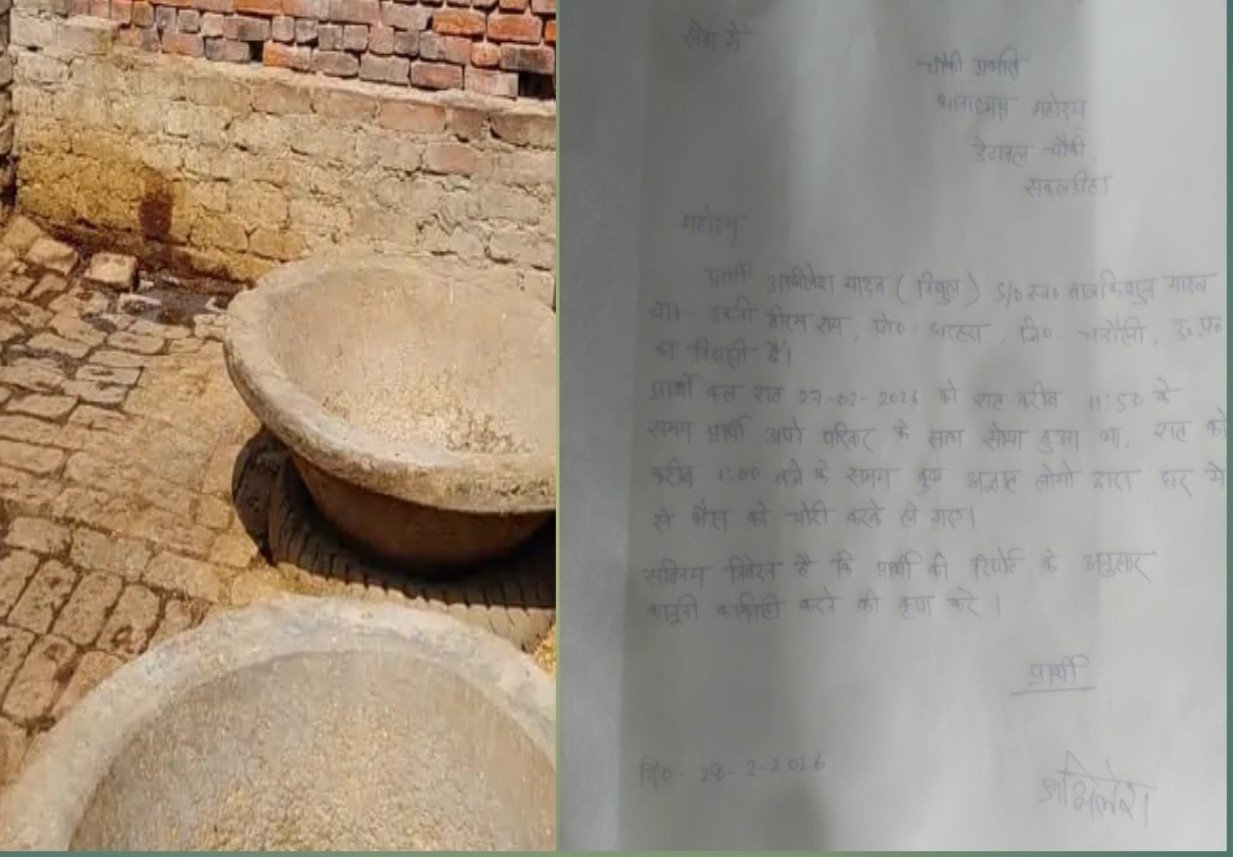 सेवा में
चौकी प्रभारी
थानाध्यक्ष महोदय
चौकी
सकलडीहा
महोदय
प्रार्थी अखिलेश यादव ( ) S/o स्व० बालकिशुन यादव
ग्रा० - राय, पो० - , जि० - चन्दौली, उ० प्र०
का निवासी है।
प्रार्थी कल रात 27-02-2026 को रात करीब 11:50 के
समय प्रार्थी अपने परिवार के साथ सोया हुआ था, रात को
करीब 1:00 बजे के समय कुछ अज्ञात लोगो द्वारा घर में
से भैंस को चोरी करके ले गए।
सविनय निवेदन है कि प्रार्थी की रिपोर्ट के अनुसार
कानूनी कार्यवाही करने की कृपा करे ।
प्रार्थी
दि० - 28-2-2026
अखिलेश